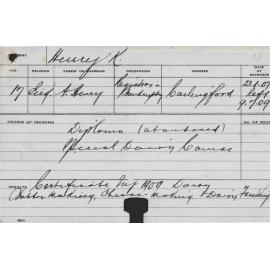 Henry K.
AGE RELIGION PARENT OR GUARDIAN OCCUPATION ADDRESS DATE OF ENTRANCE
17 A. Henry Registrar in Bankruptcy Carlingford 23.1.07
9.7.09
COURSE OF TRAINING
Diploma (abandoned)
Special Dairy Course
RESULTS Certificate 1909 Dairy
Butter Making, Cheese-making & Dairy Farming